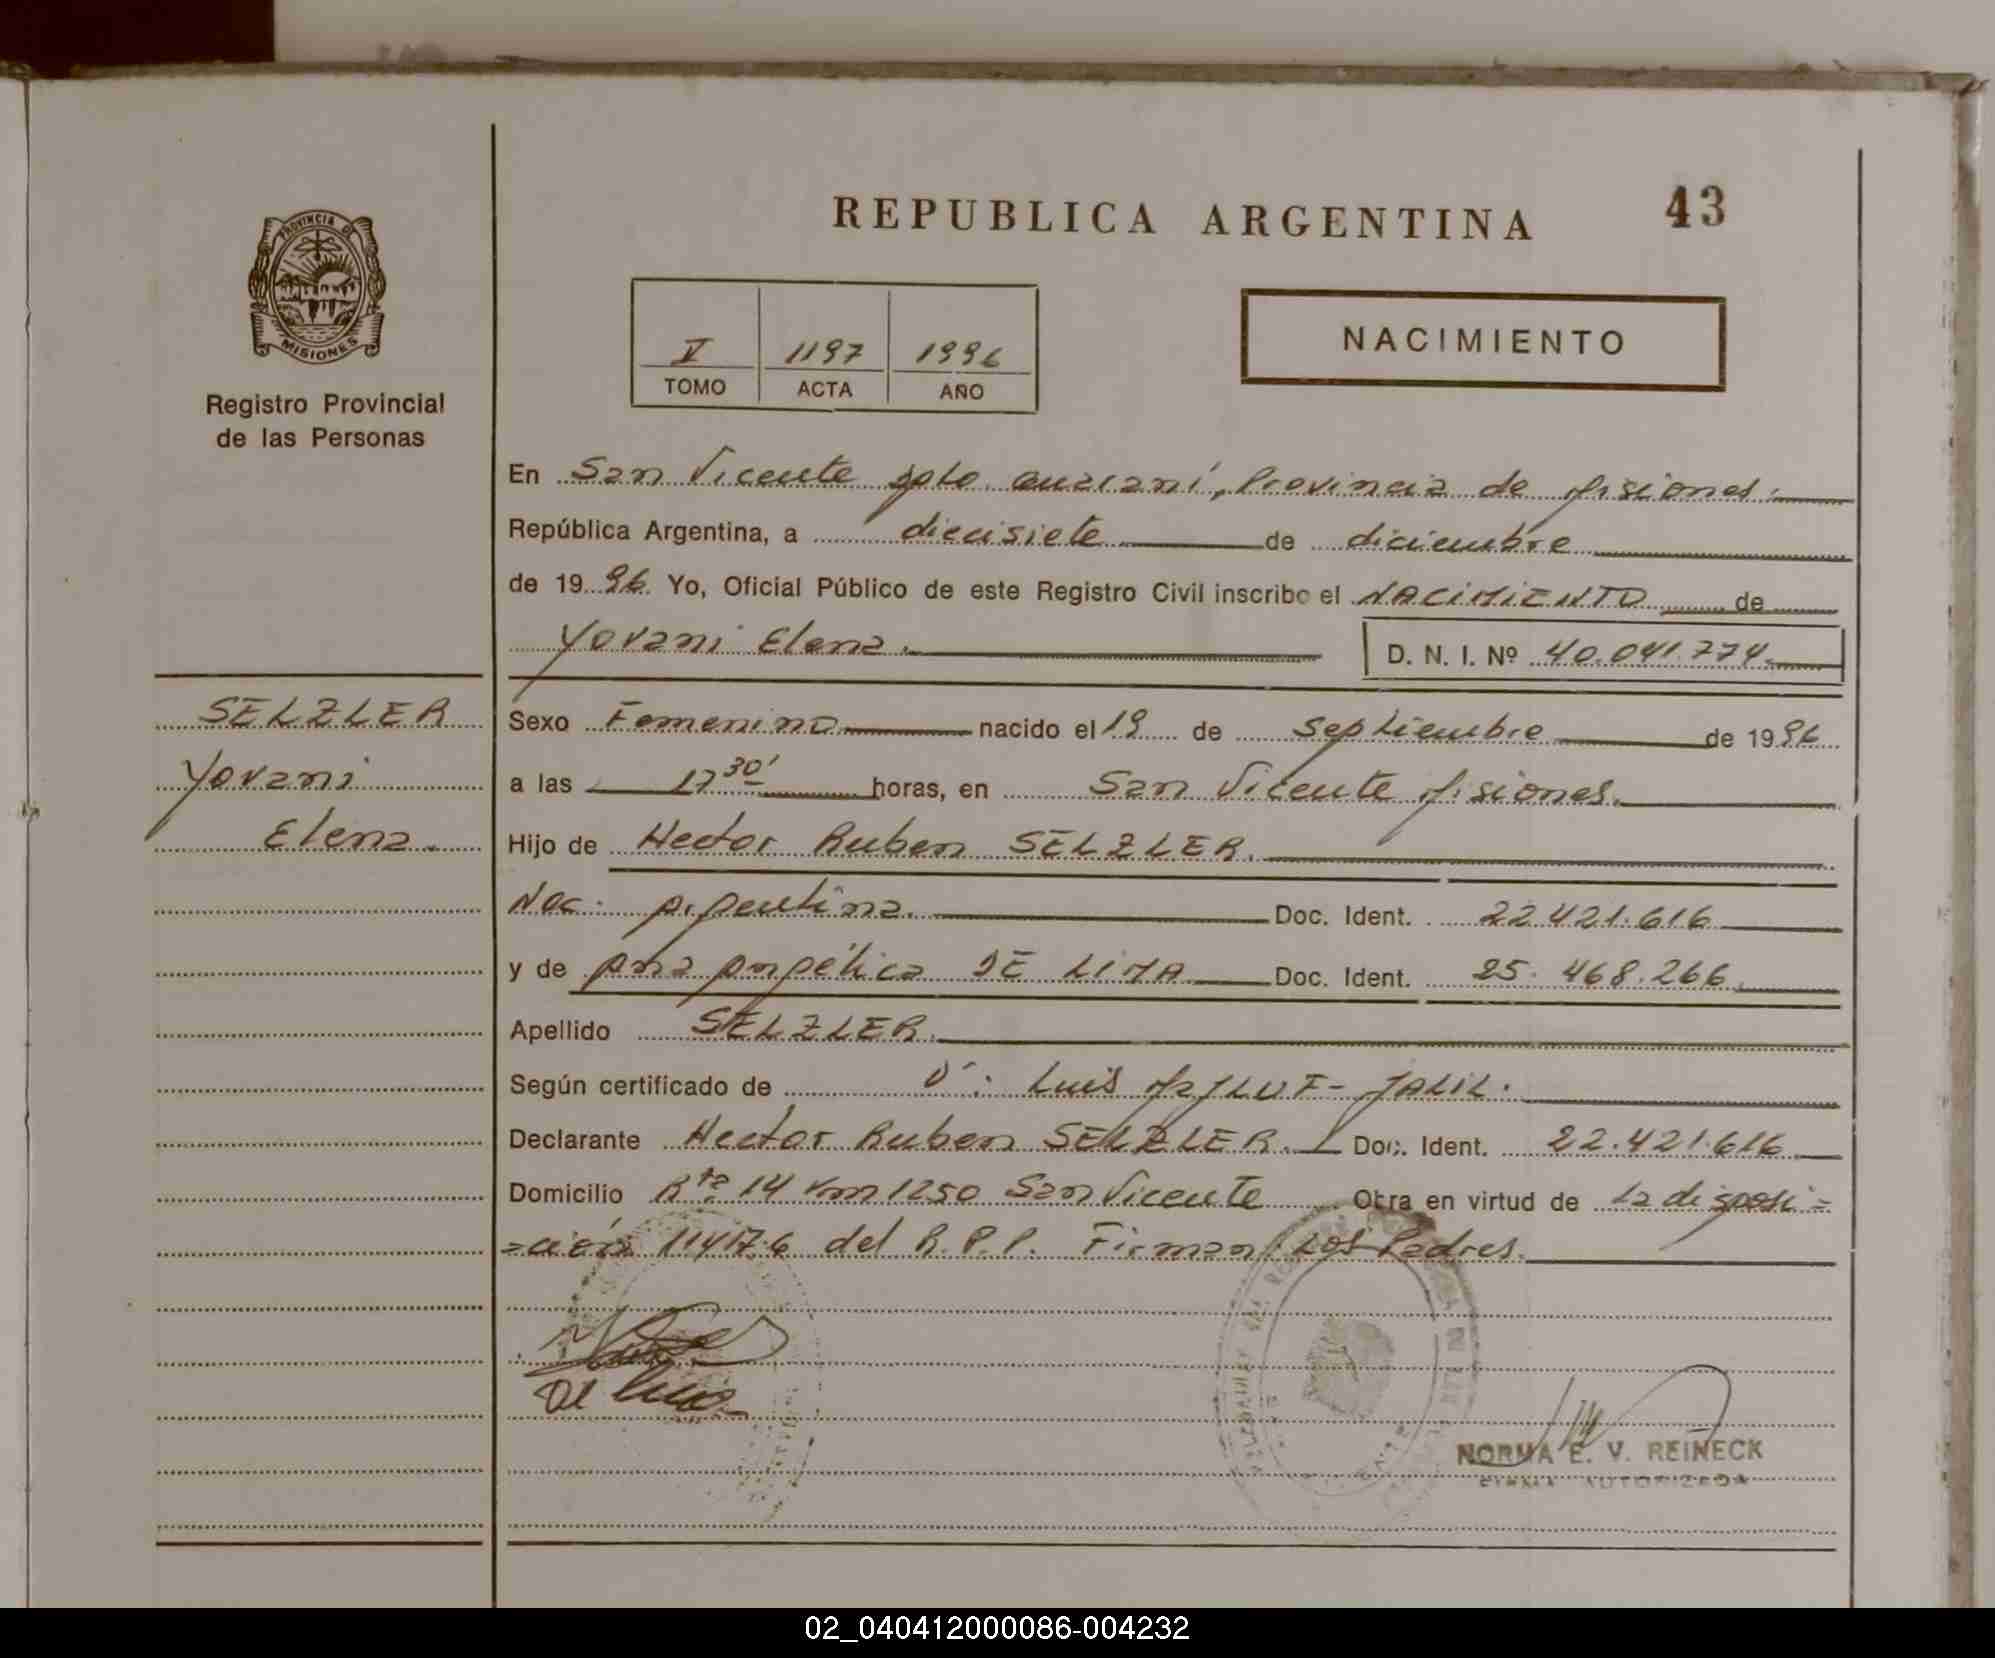 REPUBLICA ARGENTINA 43
PROVINCIA DE
MISIONES
Registro Provincial
de las Personas
V 1197 1996
TOMO ACTA AÑO
NACIMIENTO
En San Vicente Dpto. Guaraní, Provincia de Misiones.
República Argentina, a diecisiete de diciembre
de 1996 Yo, Oficial Público de este Registro Civil inscribo el NACIMIENTO de
Yovani Elena.
D. N. I. Nº 40.041.774.
SELZLER
Yovani
Elena.
Sexo Femenino nacido el 19 de septiembre de 1996
a las 17 30' horas, en San Vicente Misiones.
Hijo de Hector Ruben SELZLER.
Nac. Argentina. Doc. Ident. 22.421.616
y de Ana Angélica DE LIMA Doc. Ident. 25.468.266.
Apellido SELZLER.
Según certificado de D. Luis JALIL.
Declarante Hector Ruben SELZLER. Doc. Ident. 22.421.616
Domicilio Rta 14 Km 1250 San Vicente Obra en virtud de la disposi=
=ción 114176 del R.P.P. Firman los Padres.
De Lima
NORMA E. V. REINECK
FIRMA AUTORIZADA
02_040412000086-004232